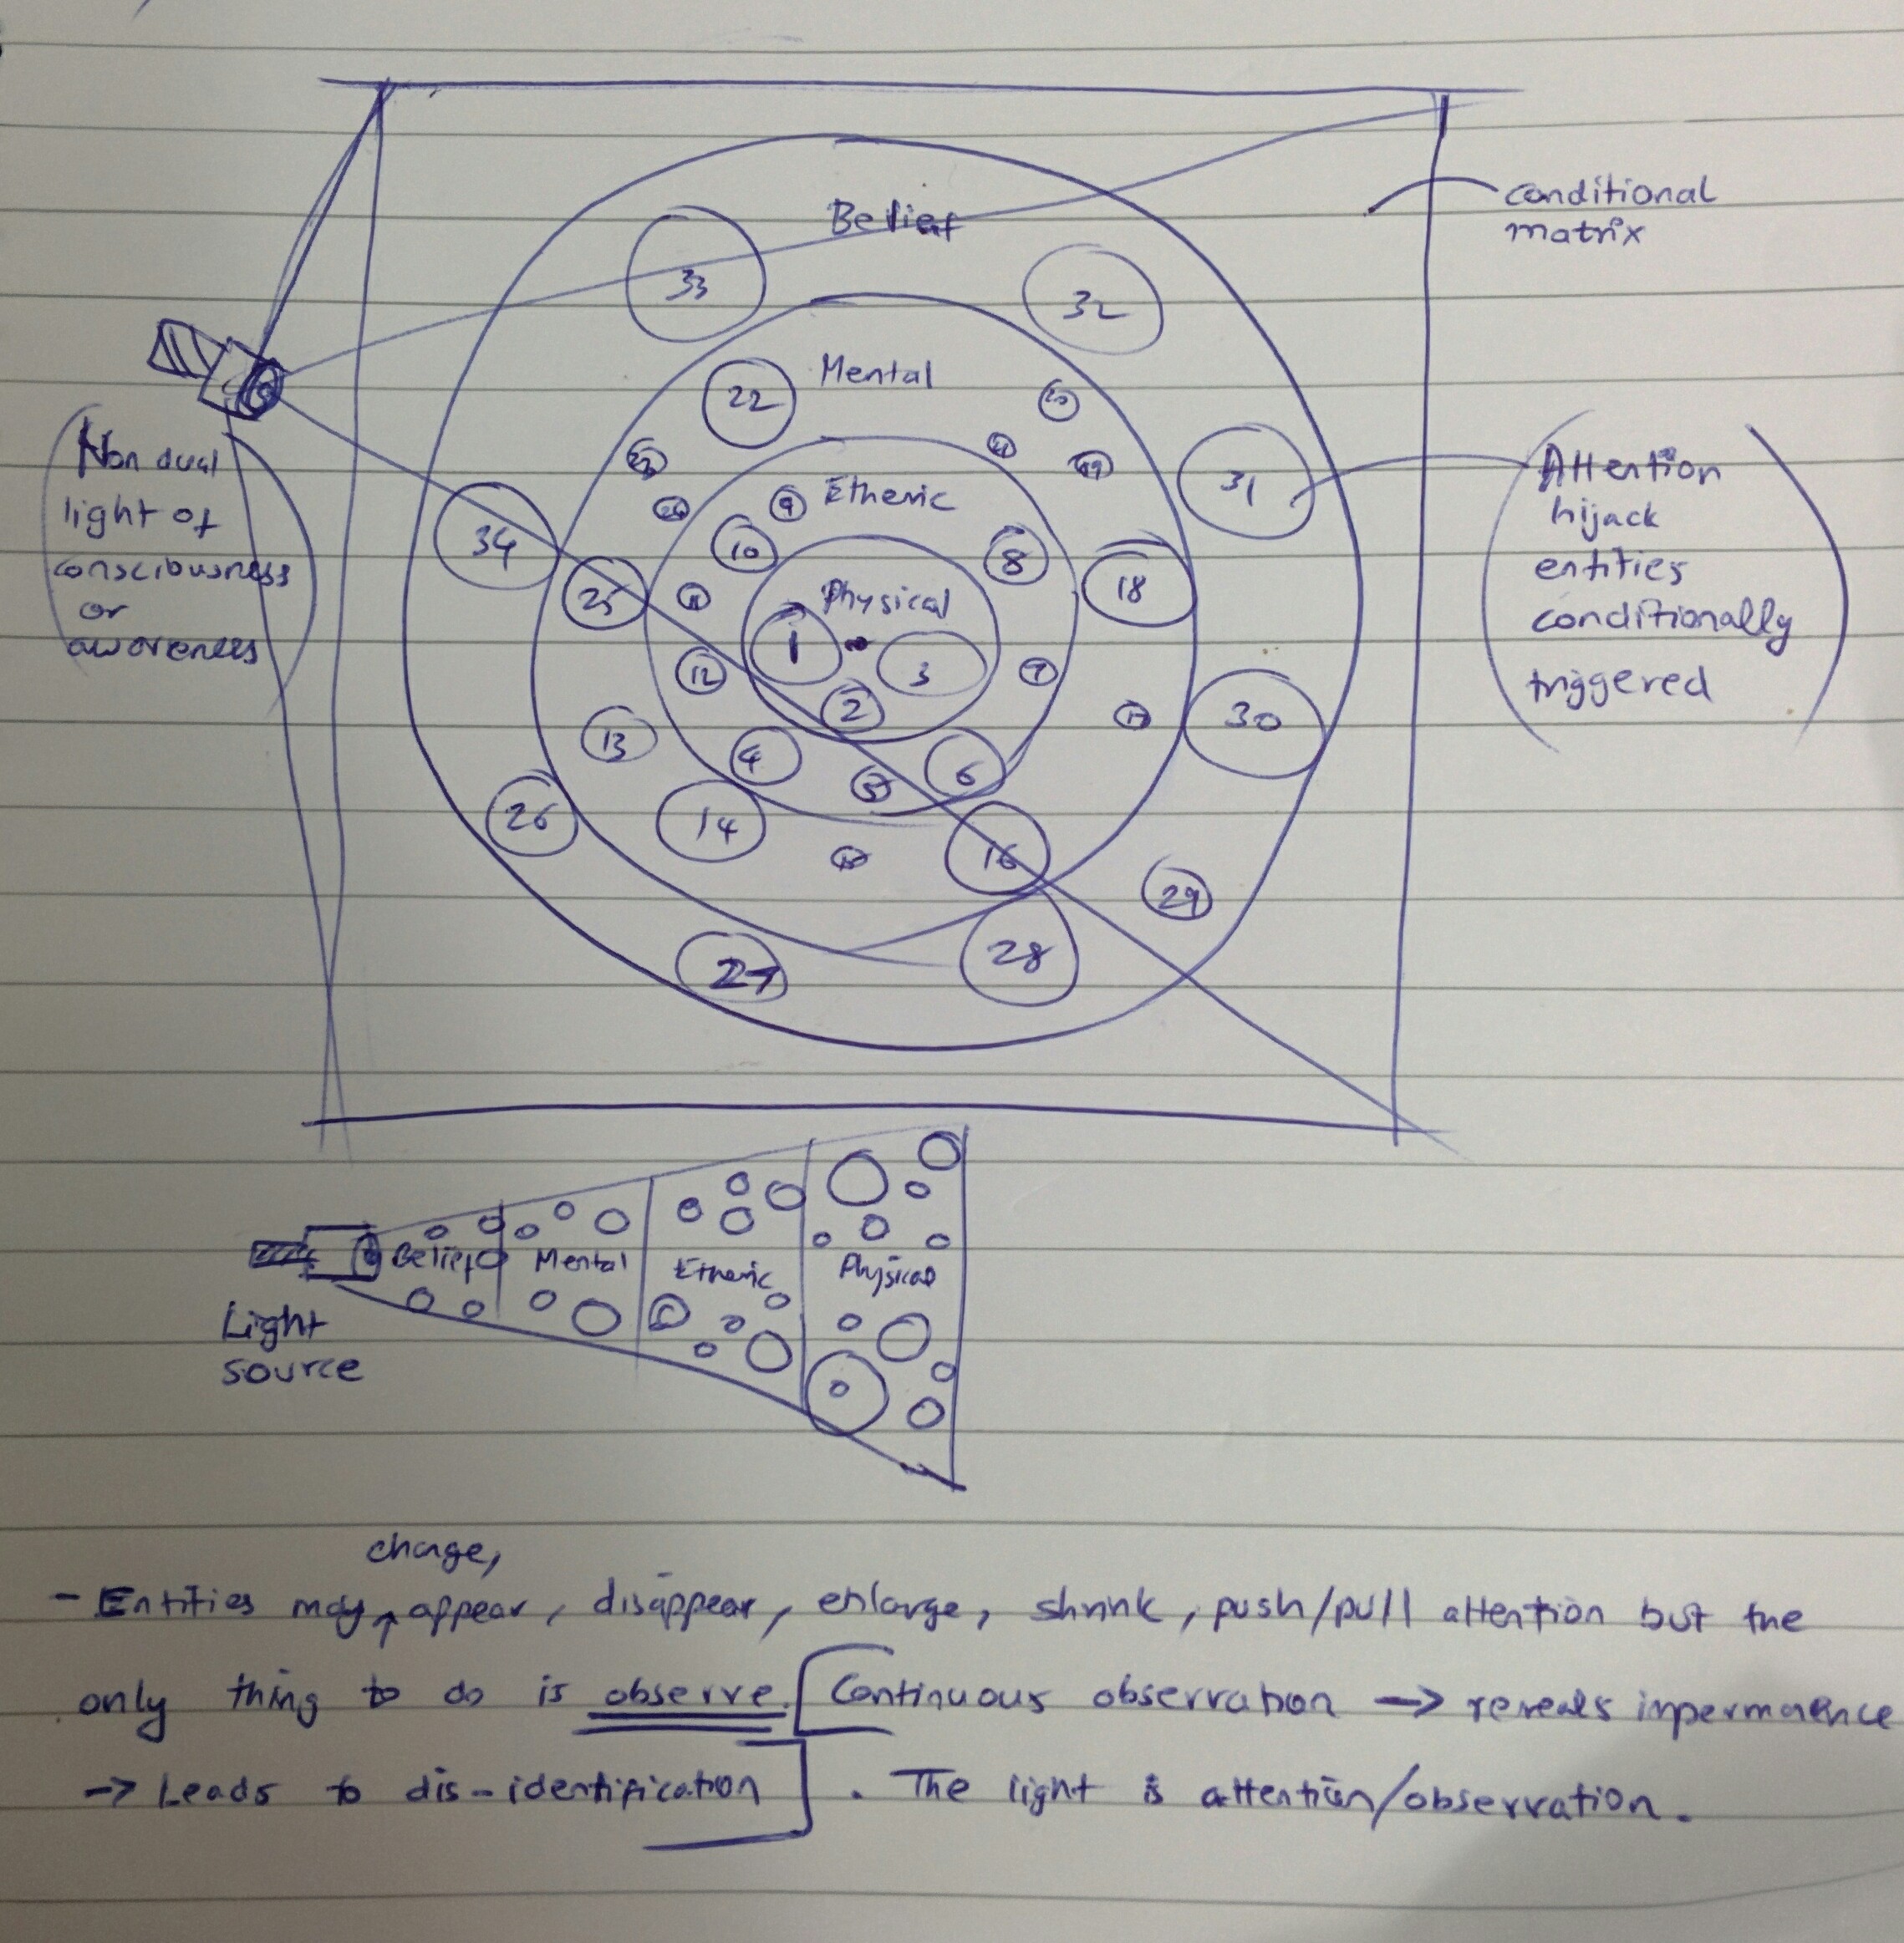 conditional
matrix
Belief
33
32
Mental
22
20
21
19
23
24
Non dual
light of
consciousness
or
awareness
Attention
hijack
entities
conditionally
triggered
31
34
Etheric
9
10
8
25
11
18
Physical
1
3
2
12
7
13
4
5
6
17
30
26
14
16
29
27
28
Belief
Mental
Etheric
Physical
Light
source
change,
- Entities may appear, disappear, enlarge, shrink, push/pull attention but the
only thing to do is observe. [Continuous observation → reveals impermanence
→ Leads to dis-identification]. The light is attention/observation.